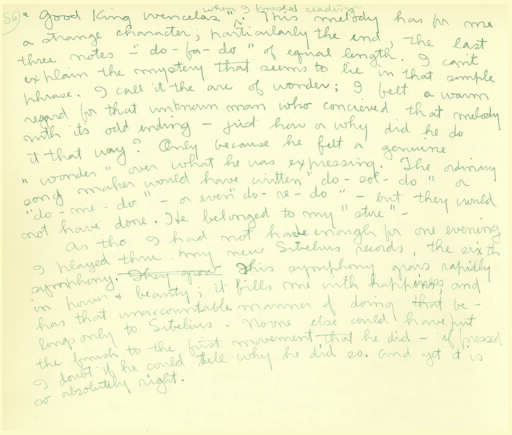 56
when I tired reading
"Good King Wencelas". This melody has for me
a strange character, particularly the end, the last
three notes – "do-fa-do" of equal length. I can't
explain the mystery that seems to lie in that simple
phrase. I call it the arc of wonder; I felt a warm
regard for that unknown man who concieved that melody
with its odd ending – just how or why did he do
it that way? Only because he felt a genuine
"wonder" over what he was expressing. The ordinary
song maker would have written "do-sol-do" or
"do-me-do" – or even "do-re-do" – but they would
not have done. He belonged to my "etre" –
As tho I had not had enough for one evening
I played thru my new Sibelius records, the sixth
symphony. They great This symphony grows rapidly
in power & beauty; it fills me with happiness and
has that unaccountable manner of doing that be-
longs only to Sibelius. No one else could have put
the finish to the first movement that he did – if pressed
I doubt if he could tell why he did so. and yet it is
so absolutely right.